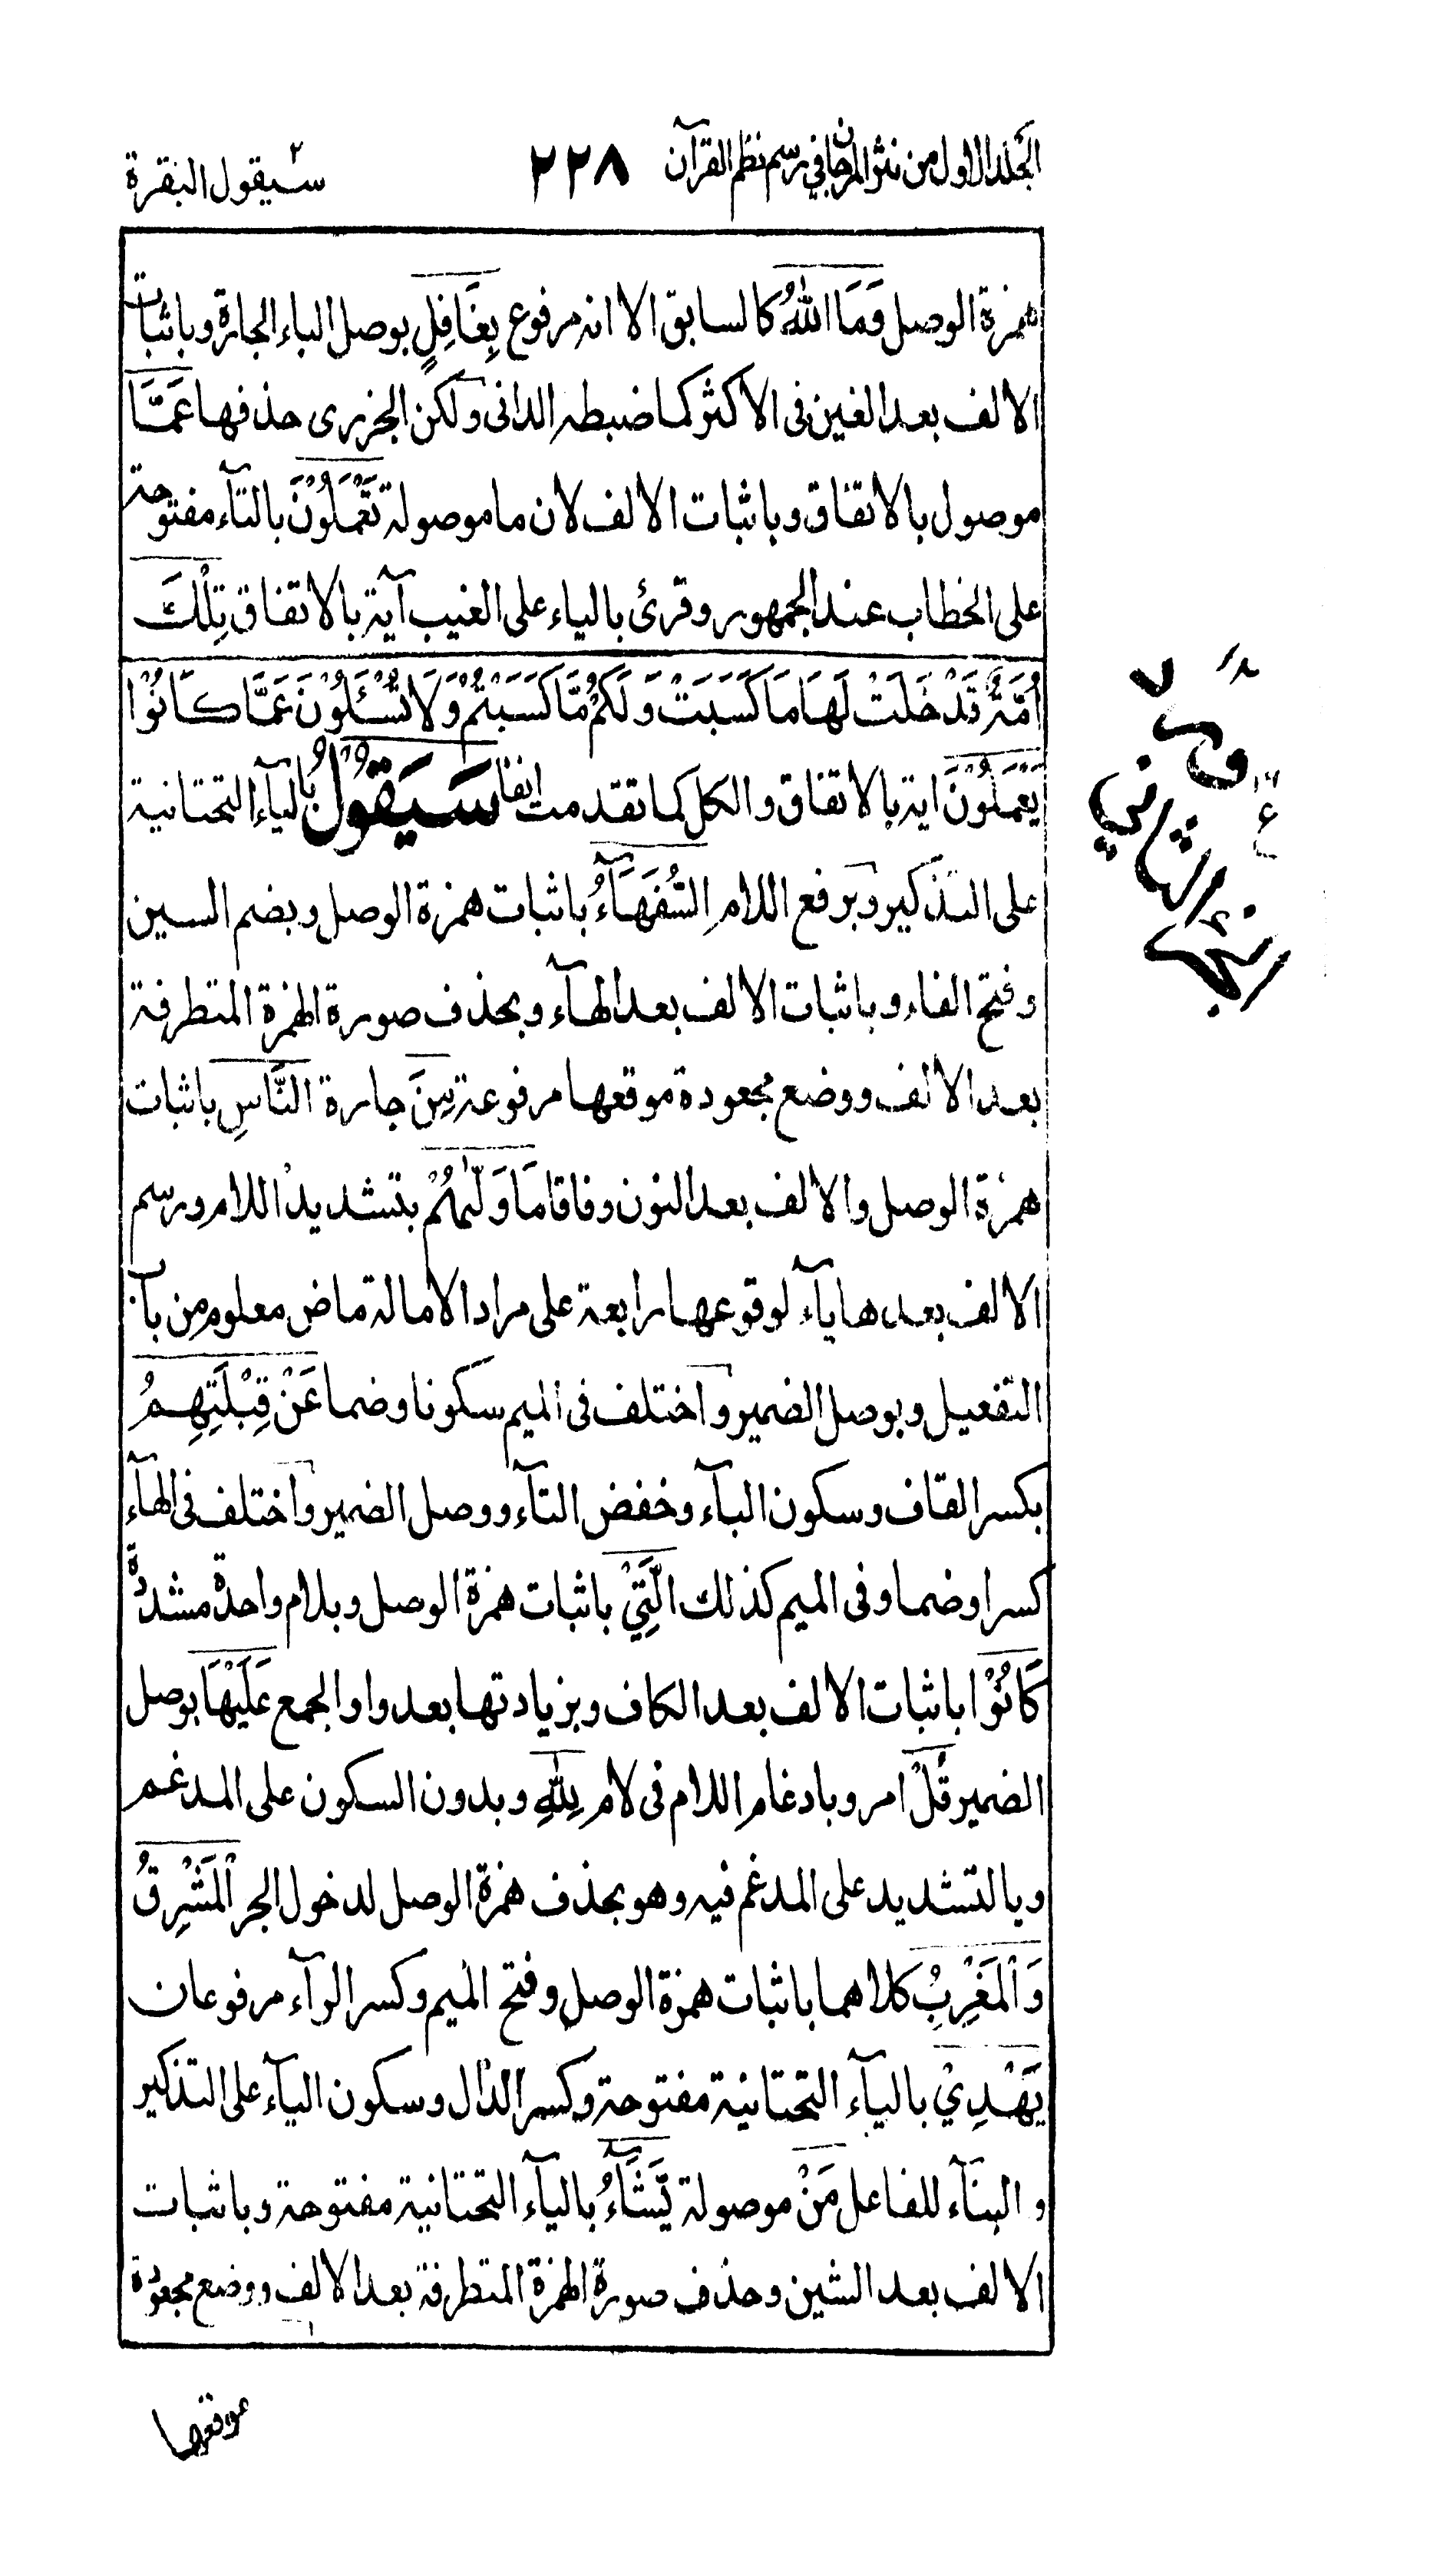 المجلد الاول من نثر المرجان في رسم نظم القرآن ٢٢٨ سيقول ٢ البقرة
همزة الوصل وَمَا اللّٰهُ كالسابق الا انه مرفوع بِغَافِلٍ بوصل الباء الجارة وباثبات
الالف بعد الغين فى الاكثر كما ضبطه الدانى ولكن الجزرى حذفها عَمَّا
موصول بالاتفاق وباثبات الالف لان ما موصولة تَعْمَلُوْنَ بالتآء مفتوحة
على الخطاب عند الجمهور وقرئ بالياء على الغيب آية بالاتفاق تِلْكَ
اُمَّةٌ قَدْ خَلَتْ لَهَا مَا كَسَبَتْ وَلَكُمْ مَّا كَسَبْتُمْ وَلَا تُسْـَٔلُوْنَ عَمَّا كَانُوْا
يَعْمَلُوْنَ اية بالاتفاق والكل كما تقدمت انفا سَيَقُوْلُ بالياء التحتانية
على التذكير وبرفع اللام السُّفَهَآءُ باثبات همزة الوصل وبضم السين
وفتح الفاء وباثبات الالف بعد الهآء وبحذف صورة الهمزة المتطرفة
بعد الالف ووضع مجعودة موقعها مرفوعة مِنَ جارة النَّاسِ باثبات
همزة الوصل والالف بعد النون وفاقا مَا وَلّٰىهُمْ بتشديد اللام ورسم
الالف بعدها يآء لوقوعها رابعة على مراد الامالة ماض معلوم من باب
التفعيل وبوصل الضمير واختلف فى الميم سكونا وضما عَنْ قِبْلَتِهِمُ
بكسر القاف وسكون البآء وخفض التآء ووصل الضمير واختلف فى الهآء
كسرا وضما وفى الميم كذلك الَّتِيْ باثبات همزة الوصل وبلام واحدة مشددة
كَانُوْا باثبات الالف بعد الكاف وبزيادتها بعد واو الجمع عَلَيْهَا بوصل
الضمير قُلْ امر وبادغام اللام فى لام لِلّٰهِ وبدون السكون على المدغم
وبالتشديد على المدغم فيه وهو بحذف همزة الوصل لدخول الجر الْمَشْرِقُ
وَالْمَغْرِبُ كلاهما باثبات همزة الوصل وفتح الميم وكسر الرآء مرفوعان
يَهْدِيْ بالياء التحتانية مفتوحة وكسر الدال وسكون اليآء على التذكير
والبنآء للفاعل مَنْ موصولة يَّشَآءُ باليآء التحتانية مفتوحة وباثبات
الالف بعد الشين وحذف صورة الهمزة المتطرفة بعد الالف ووضع مجعودة
موقعها
الجزء الثاني
ع